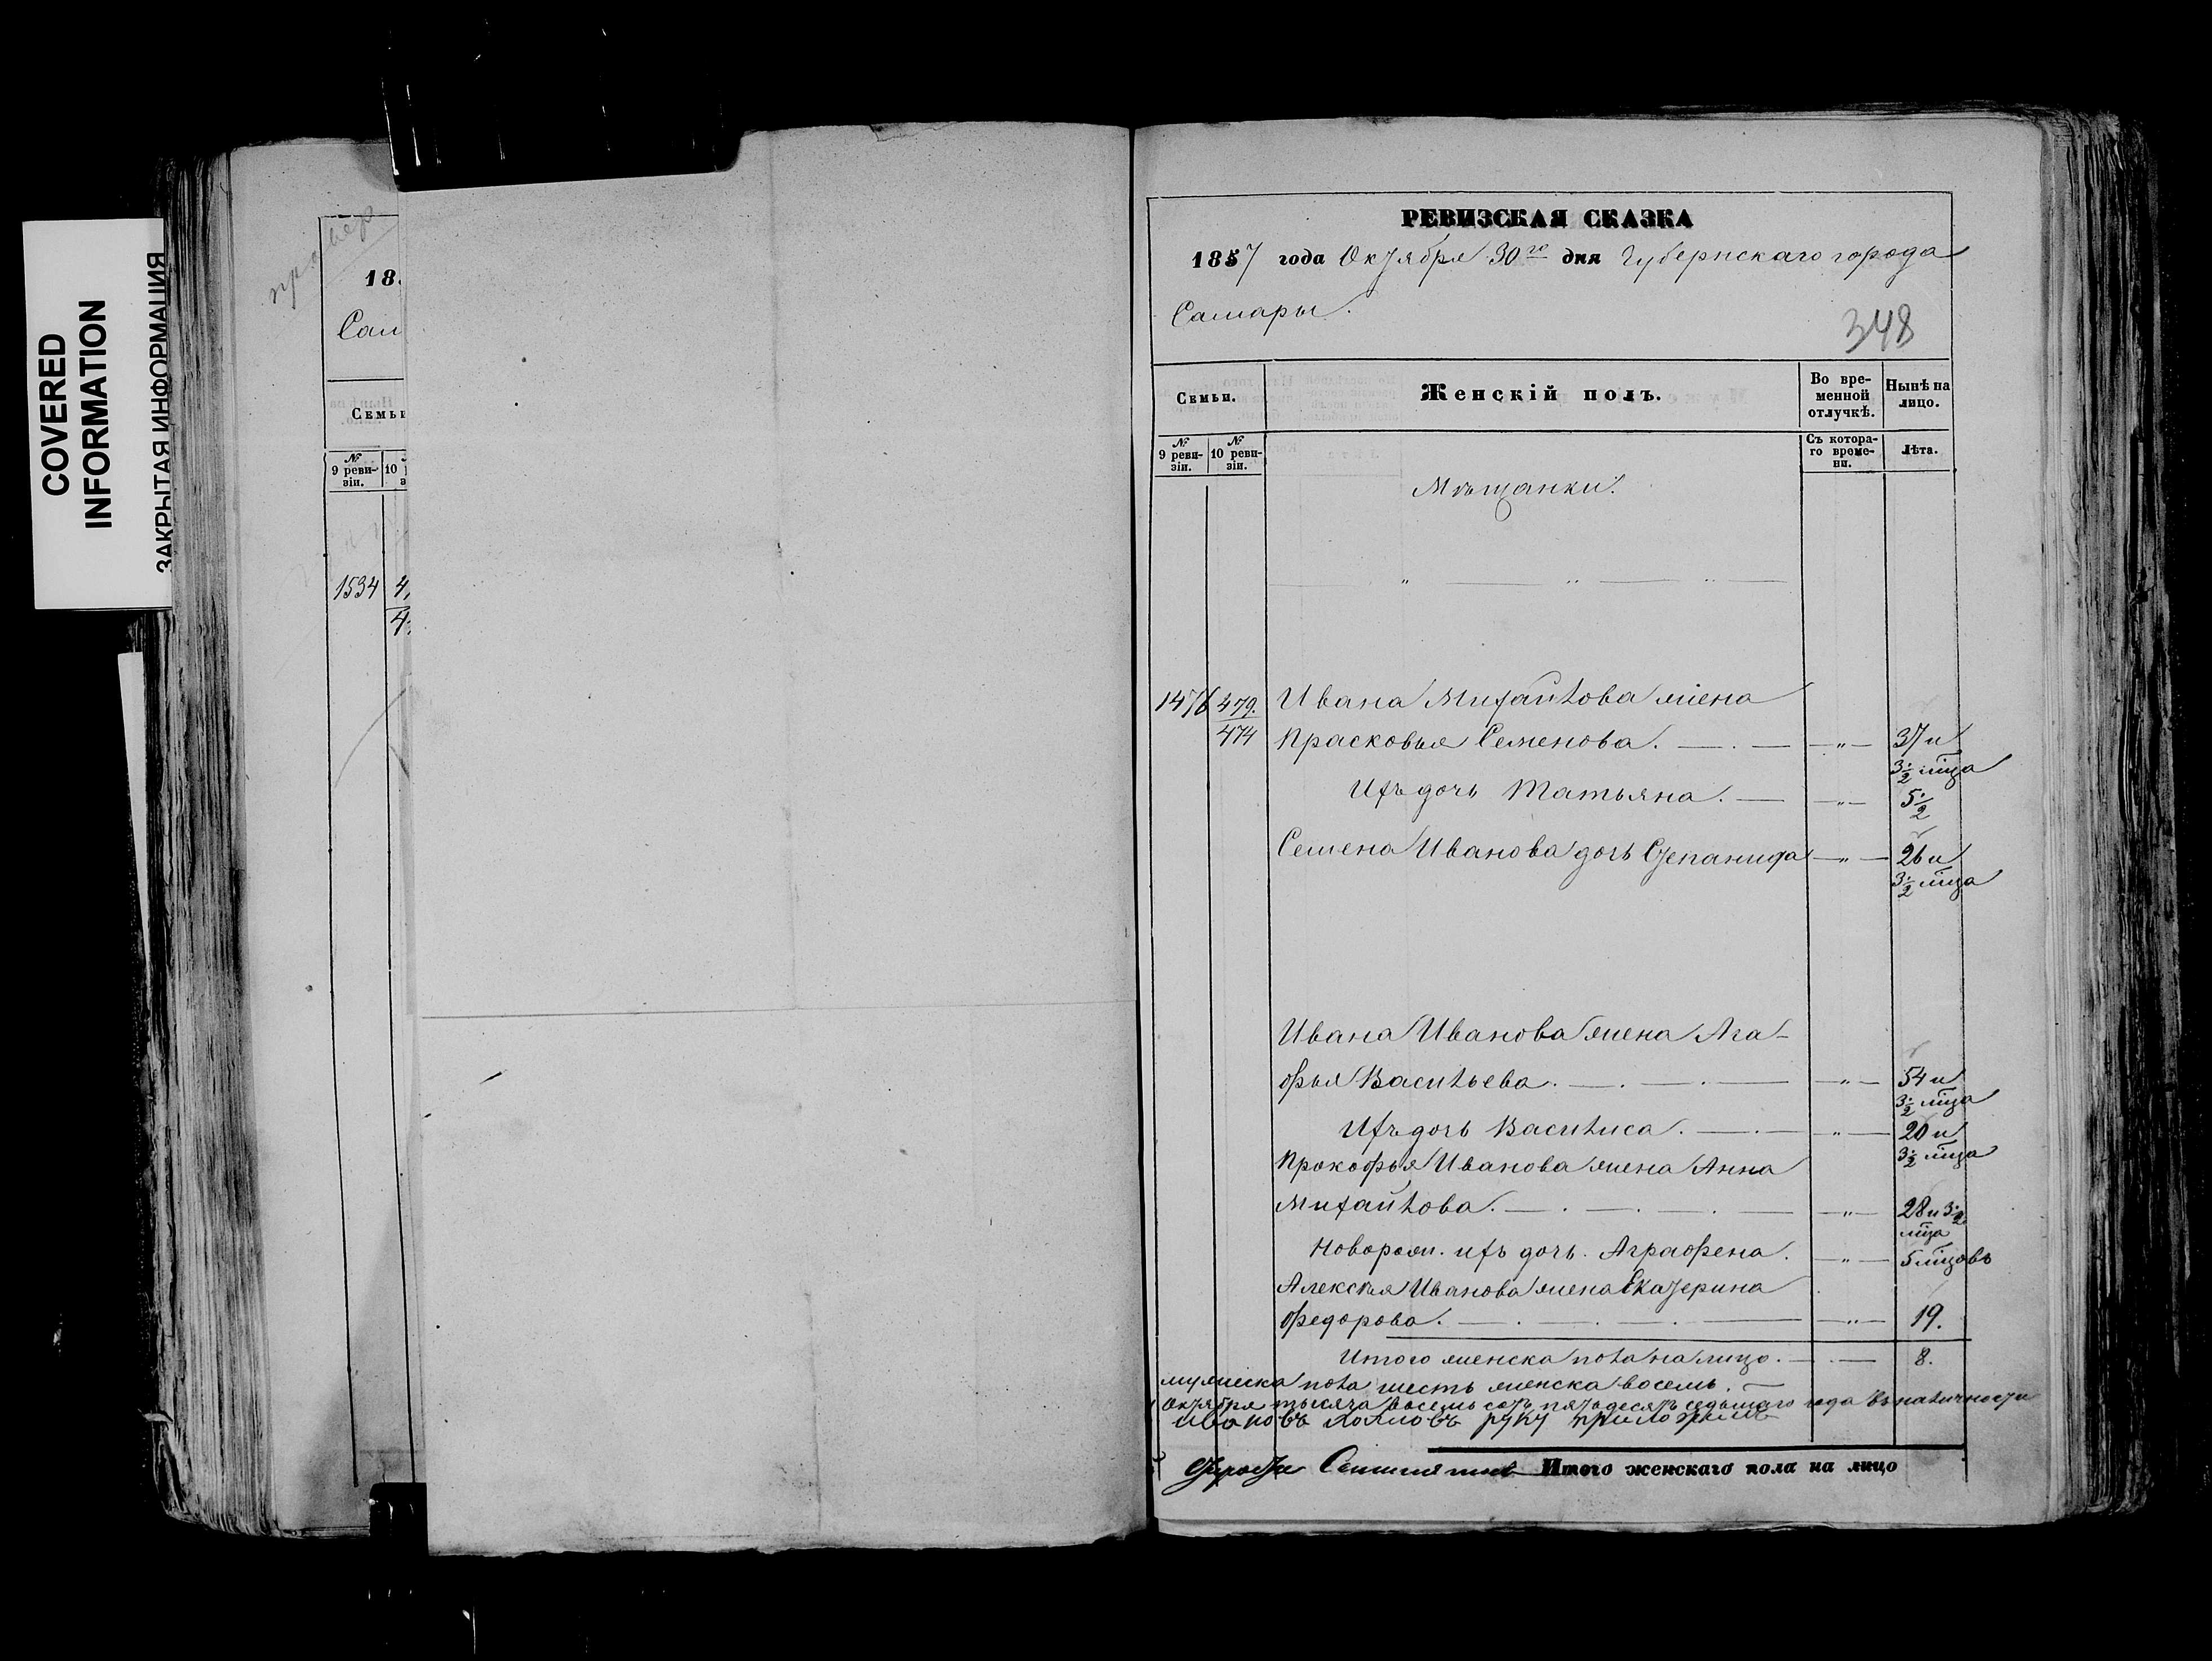 COVERED
INFORMATION
ЗАКРЫТАЯ ИНФОРМАЦИЯ
18
Сам
Семьи
№
9 реви-
зіи.
10
1534
4
4
РЕВИЗСКАЯ СКАЗКА
1857 года Октября 30го дня Губернскаго города
Самары.
348
Семьи.
Женскій полъ.
Во вре-
менной
отлучкѣ.
Нынѣ на
лицо.
№
9 реви-
зіи.
№
10 реви-
зіи.
Съ котора-
го време-
ни.
Лѣта.
Мѣщанки.
1476 479. Ивана Михайлова жена
474 Прасковья Семенова. 37 и
3 1/2 мца
Ихъ дочь Татьяна. 5 1/2
Семена Иванова дочь Степанида 26 и
3 1/2 мца
Ивана Иванова жена Ага-
фья Васильева. 54 и
3 1/2 мца
Ихъ дочь Василиса. 20 и
3 1/2 мца
Прокофья Иванова жена Анна
Михайлова. 28 и 3 1/2
мца
Новорож. ихъ дочь. Аграфена. 5 мцовъ
Алексѣя Иванова жена Екатерина
Федорова. 19.
Итого женска пола на лицо. 8.
мужеска пола шесть женска восемь.
Октября тысяча восемь сотъ пятьдесятъ седьмаго года въ наличности
Ивановъ руку приложилъ
Итого женскаго пола на лицо